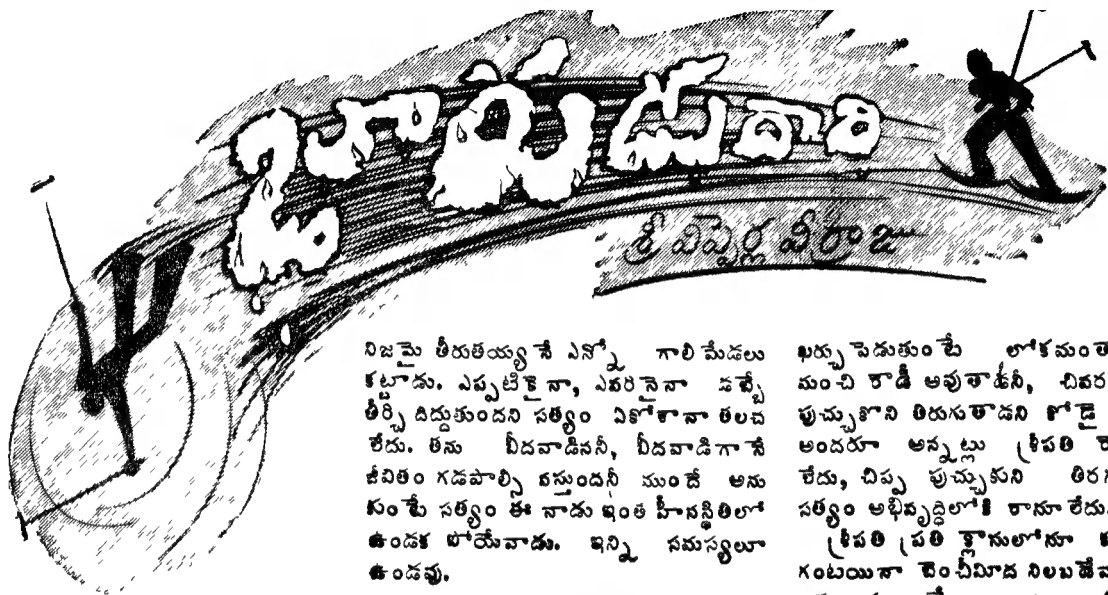 హైమాడుదారి
శ్రీ విప్పెర్ల వీర్రాజు
నిజమై తీరుతయ్య నే ఎన్నో గాలి మేడలు
కట్టాడు. ఎప్పటికై నా, ఎవరినైనా డబ్బే
తీర్చి దిద్దుతుందని సత్యం ఏకోశానా తలచ
లేదు. తను బీదవాడిననీ, బీదవాడిగా నే
జీవితం గడపాల్సి వస్తుందనీ ముందే అను
కుంటే సత్యం ఈ నాడు ఇంత హీనస్థితిలో
ఉండక పోయేవాడు. ఇన్ని సమస్యలూ
ఉండవు.
ఖర్చు పెడుతుంటే లోకమంత
మంచి రౌడీ అవుతాడనీ, చివర
పుచ్చుకొని తిరుగుతాడని
అందరూ అన్నట్లు శ్రీపతి
లేదు, చిప్ప పుచ్చుకుని తిరగ
సత్యం అభివృద్ధిలోకి రానూ లేదు
శ్రీపతి ప్రతి క్లాసులోనూ
గంటయినా బెంచీమీద నిలబడేవ